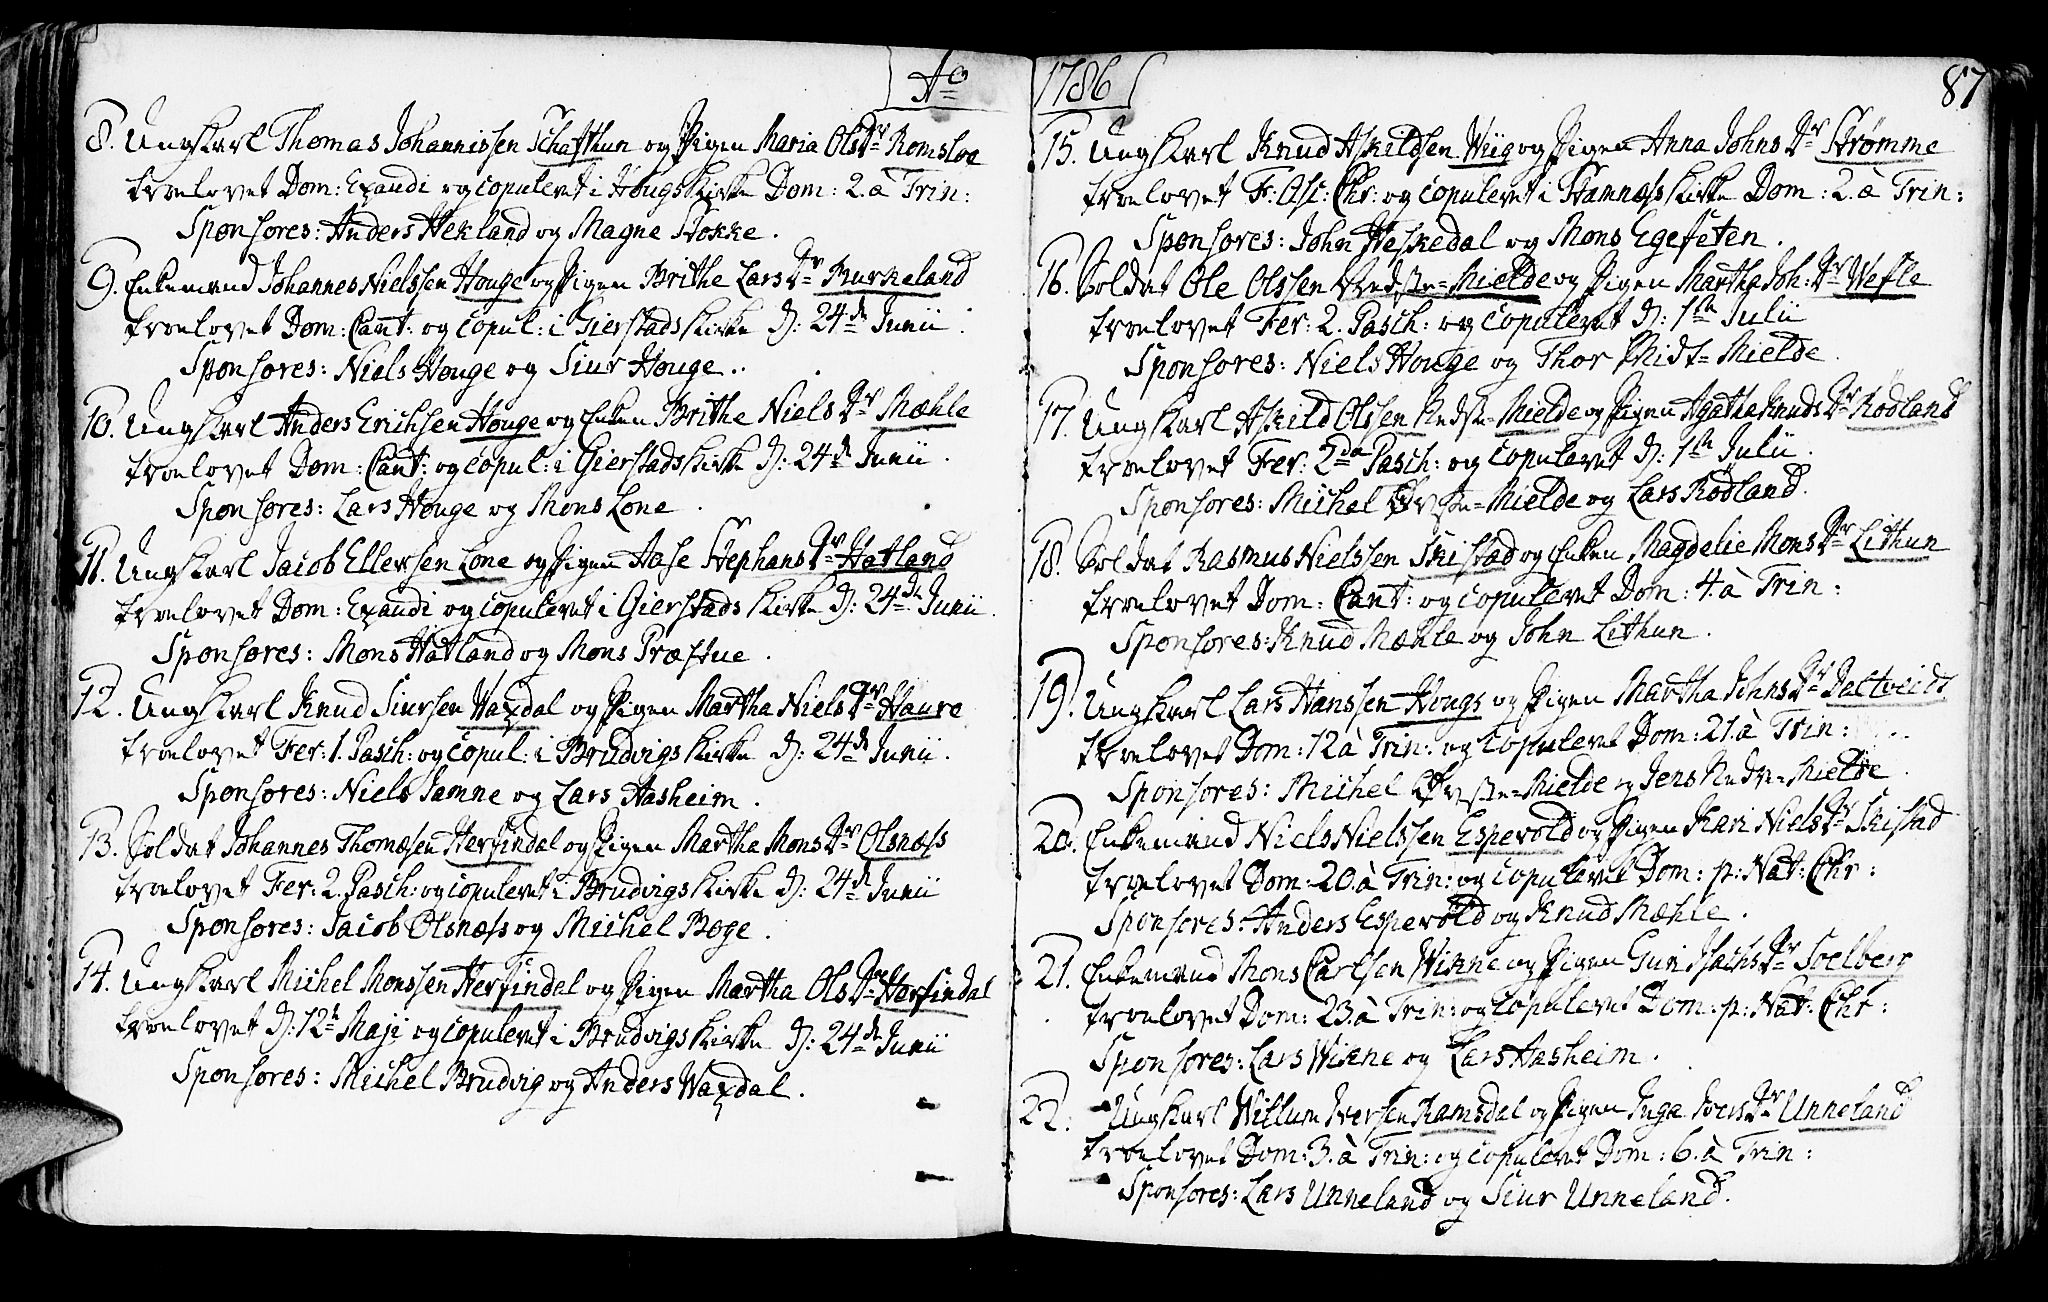 Ao
8. Ungkarl Thomas Johannissen Schafthun og Pigen Maria Olsdr Romsloe
troelovet Dom: Exaudi og copuleret i Hougs Kirke Dom: 2. à Trin:
Sponsores: Anders Hekland og Magne Stokke.
9. Enkemand Johannes Nielssen Houge og Pigen Brithe Larsdr Burkeland
troelovet Dom: Cant: og copul: i Gierstads Kirke d: 24de Junii.
Sponsores: Niels Houge og Siur Houge.
10. Ungkarl Anders Erichsen Houge og Enken Brithe Nielsdr Mæhle
troelovet Dom: Cant: og copul: i Gierstads Kirke d: 24de Junii.
Sponsores: Lars Houge og Mons Lone.
11. Ungkarl Jacob Ellersen Lone og Pigen Aase Stephansdr Hatland
troelovet Dom: Exaudi og copuleret i Gierstads Kirke d: 24de Junii.
Sponsores: Mons Hatland og Mons Præstue.
12. Ungkarl Knud Siursen Waxdal og Pigen Martha Nielsdr Haure
troelovet Fer: 1. Pasch: og copul: i Brudvigs Kirke d: 24de Junii.
Sponsores: Niels Jamne og Lars Aasheim.
13. Soldat Johannes Thomæsen Herfindal og Pigen Martha Monsdr Olsnæss
troelovet Fer: 2. Pasch: og copuleret i Brudvigs Kirke d: 24de Junii
Sponsores: Jacob Olsnæss og Michel Boge.
14. Ungkarl Michel Monssen Herfindal og Pigen Martha Olsdr Herfindal
troelovet d: 12te Maji og copuleret i Brudvigs Kirke d: 24de Junii
Sponsores: Michel Brudvig og Anders Waxdal.
1786
87
15. Ungkarl Knud Askildsen Wiig og Pigen Anna Johnsdr Strømme
troelovet F: Asc: Chr: og copuleret i Hamnæss Kirke Dom: 2. à Trin:
Sponsores: John Heskedal og Mons Egeseten.
16. Soldat Ole Olssen Nedste-Mielde og Pigen Martha Joh: dr Wefle
troelovet Fer: 2. Pasch: og copuleret d: 1te Julii
Sponsores: Niels Houge og Thor Midt-Mielde.
17. Ungkarl Askild Olssen Nedste-Mielde og Pigen Agatha Knudsdr Rødland
troelovet Fer: 2da Pasch: og copuleret d: 1te Julii.
Sponsores: Michel Øvste-Mielde og Lars Rødland.
18. Soldat Rasmus Nielssen Skistad og Enken Magdelie Monsdr Lithun
troelovet Dom: Cant: og copuleret Dom: 4. à Trin:
Sponsores: Knud Mæhle og John Lithun.
19. Ungkarl Lars Hanssen Hougs og Pigen Martha Johnsdr Daltveidt
troelovet Dom: 12 à Trin: og copuleret Dom: 21. à Trin:
Sponsores: Michel Øvste-Mielde og Jens Nedste-Mielde.
20. Enkemand Niels Nielssen Esperold og Pigen Kari Nielsdr Skistad
troelovet Dom: 20. à Trin: og copuleret Dom: p: Nat: Chr:
Sponsores: Anders Esperold og Knud Mæhle.
21. Enkemand Mons Carlsen Wikne og Pigen Guri Isachsdr Soelberg
troelovet Dom: 23. à Trin: og copuleret Dom: p: Nat: Chr:
Sponsores: Lars Wikne og Lars Aasheim.
22. Ungkarl Willum Iversen Ramsdal og Pigen Inga Joensdr Unneland
troelovet Dom: 3. à Trin: og copuleret Dom: 6. à Trin:
Sponsores: Lars Unneland og Siur Unneland.